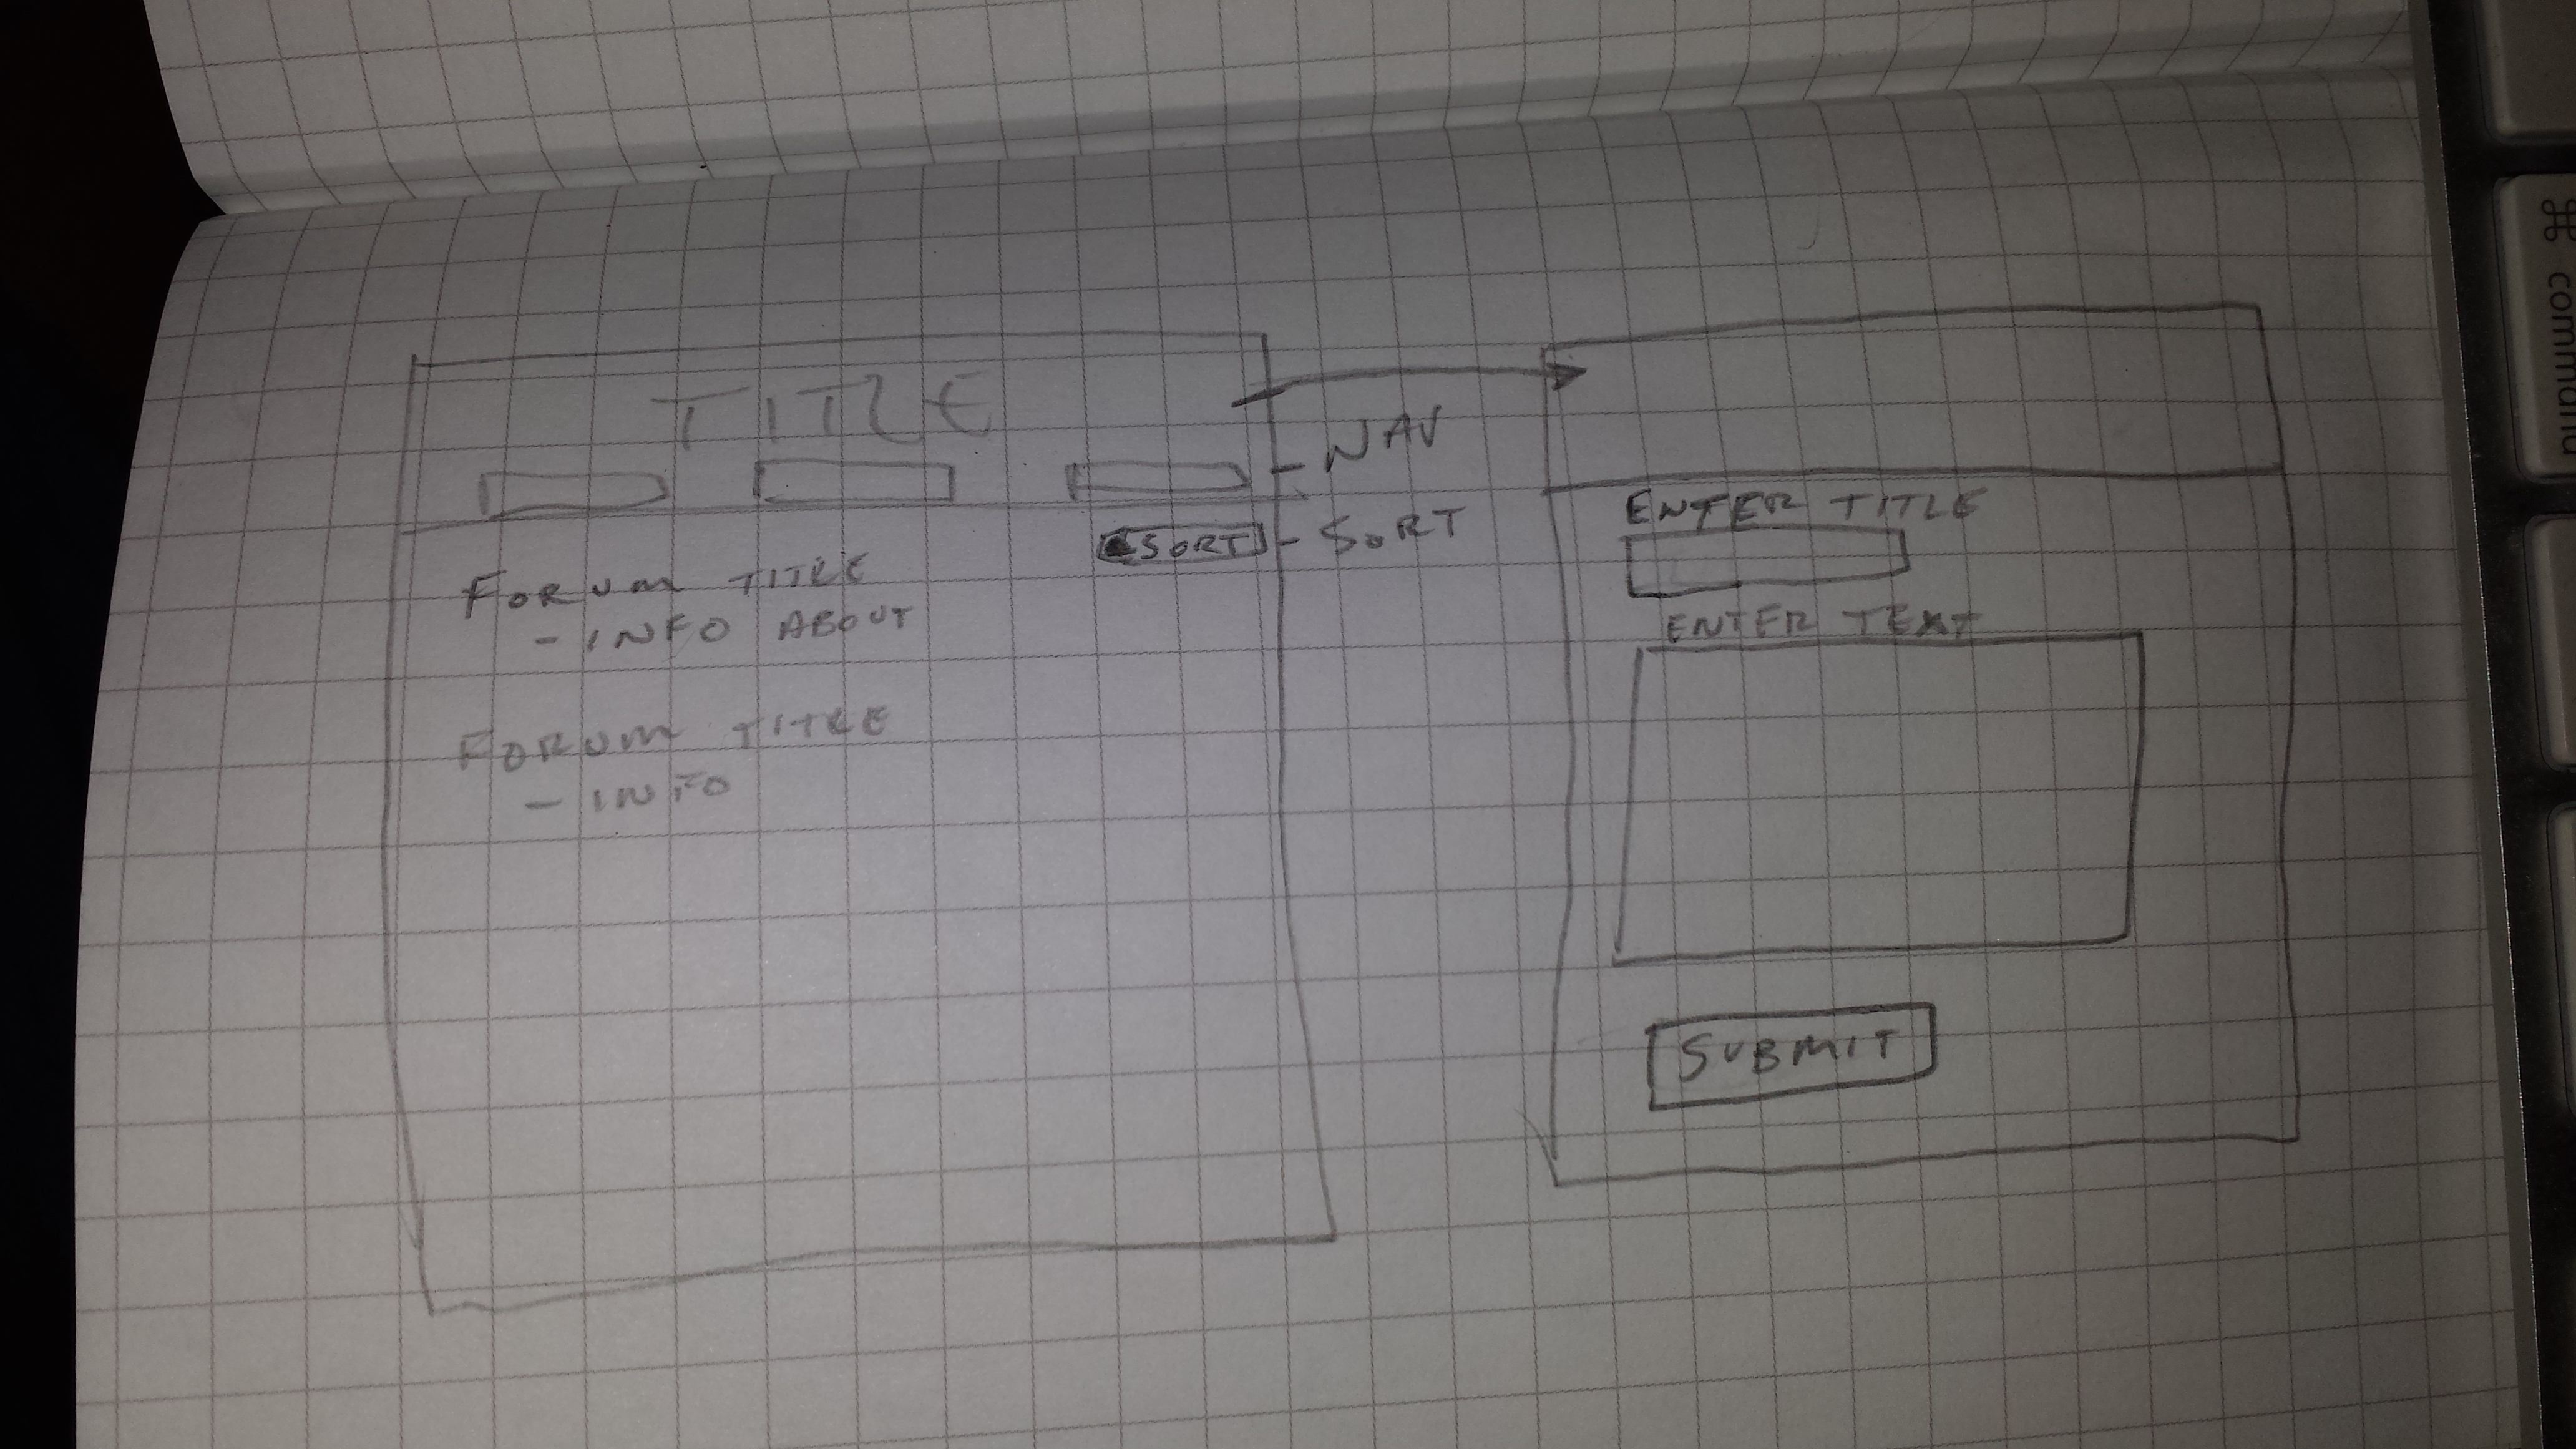 TITLE
NAV
SORT
SORT
FORUM TITLE
- INFO ABOUT
FORUM TITLE
- INFO
ENTER TITLE
ENTER TEXT
SUBMIT
⌘
command